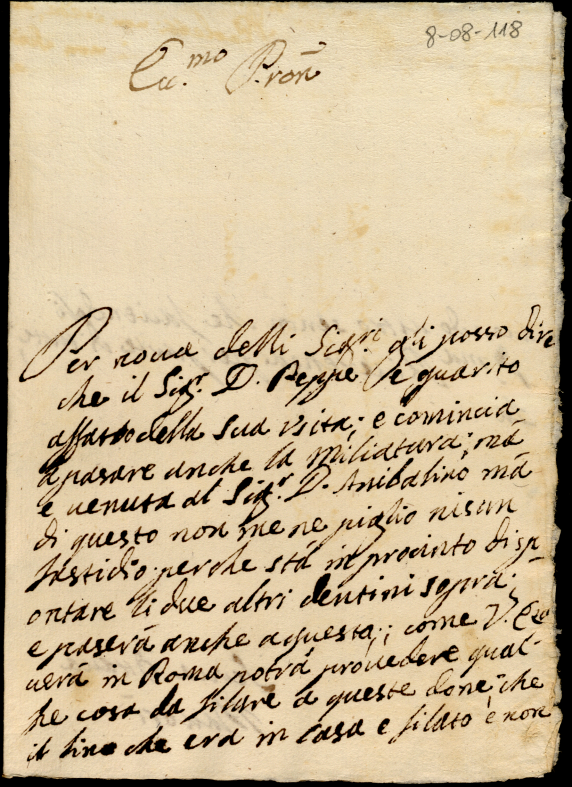 8-08-118
Ecc.mo Pron̄
Per nova delli Sigri gli posso dire
che il Sigr. D. Peppe è guarito
affatto della sua usita; e comincia
à pasare anche la miliatura; mà
e venuta al Sigr. D. Anibalino mà
di questo non me ne piglio nisun
fastidio perche stà in procinto disp-
ontare li due altri dentini sopra;
e paserà anche aquesta; come V. Ecc
verà in Roma potrà provedere qual-
he cosa da filare a queste done, che
il lino che era in casa e filato è non